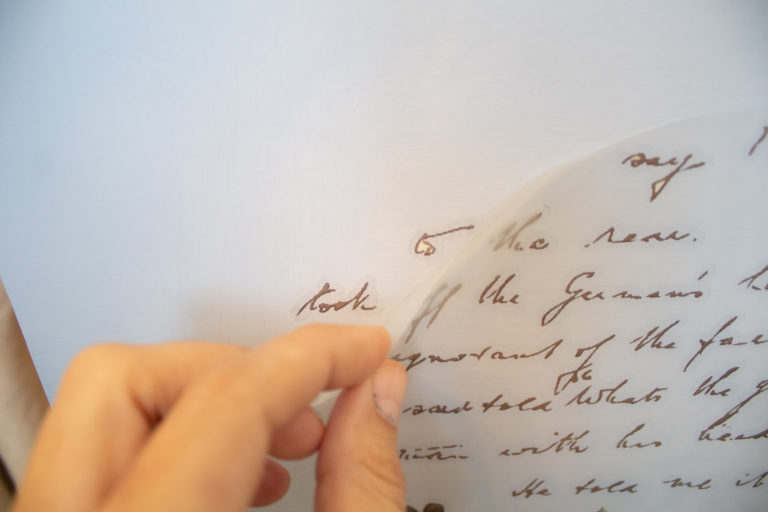 say
to the rear.
took off the German's
ignorant of the
said told Whats the
with his head
He told me it